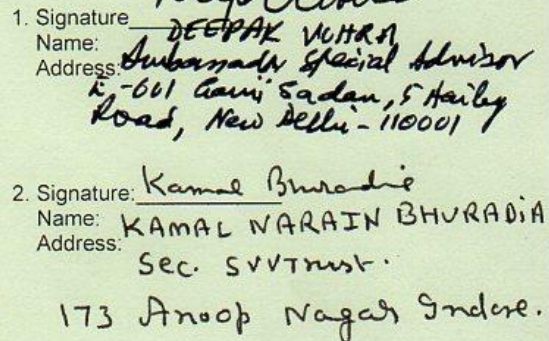 1. Signature
Name: DEEPAK VOHRA
Address: Ambassador Special Advisor
E-601 Gauri Sadan, 5 Hailey
Road, New Delhi-110001
2. Signature: Kamal Bhuradia
Name: KAMAL NARAIN BHURADIA
Address:
Sec. SVVTrust.
173 Anoop Nagar Indore.